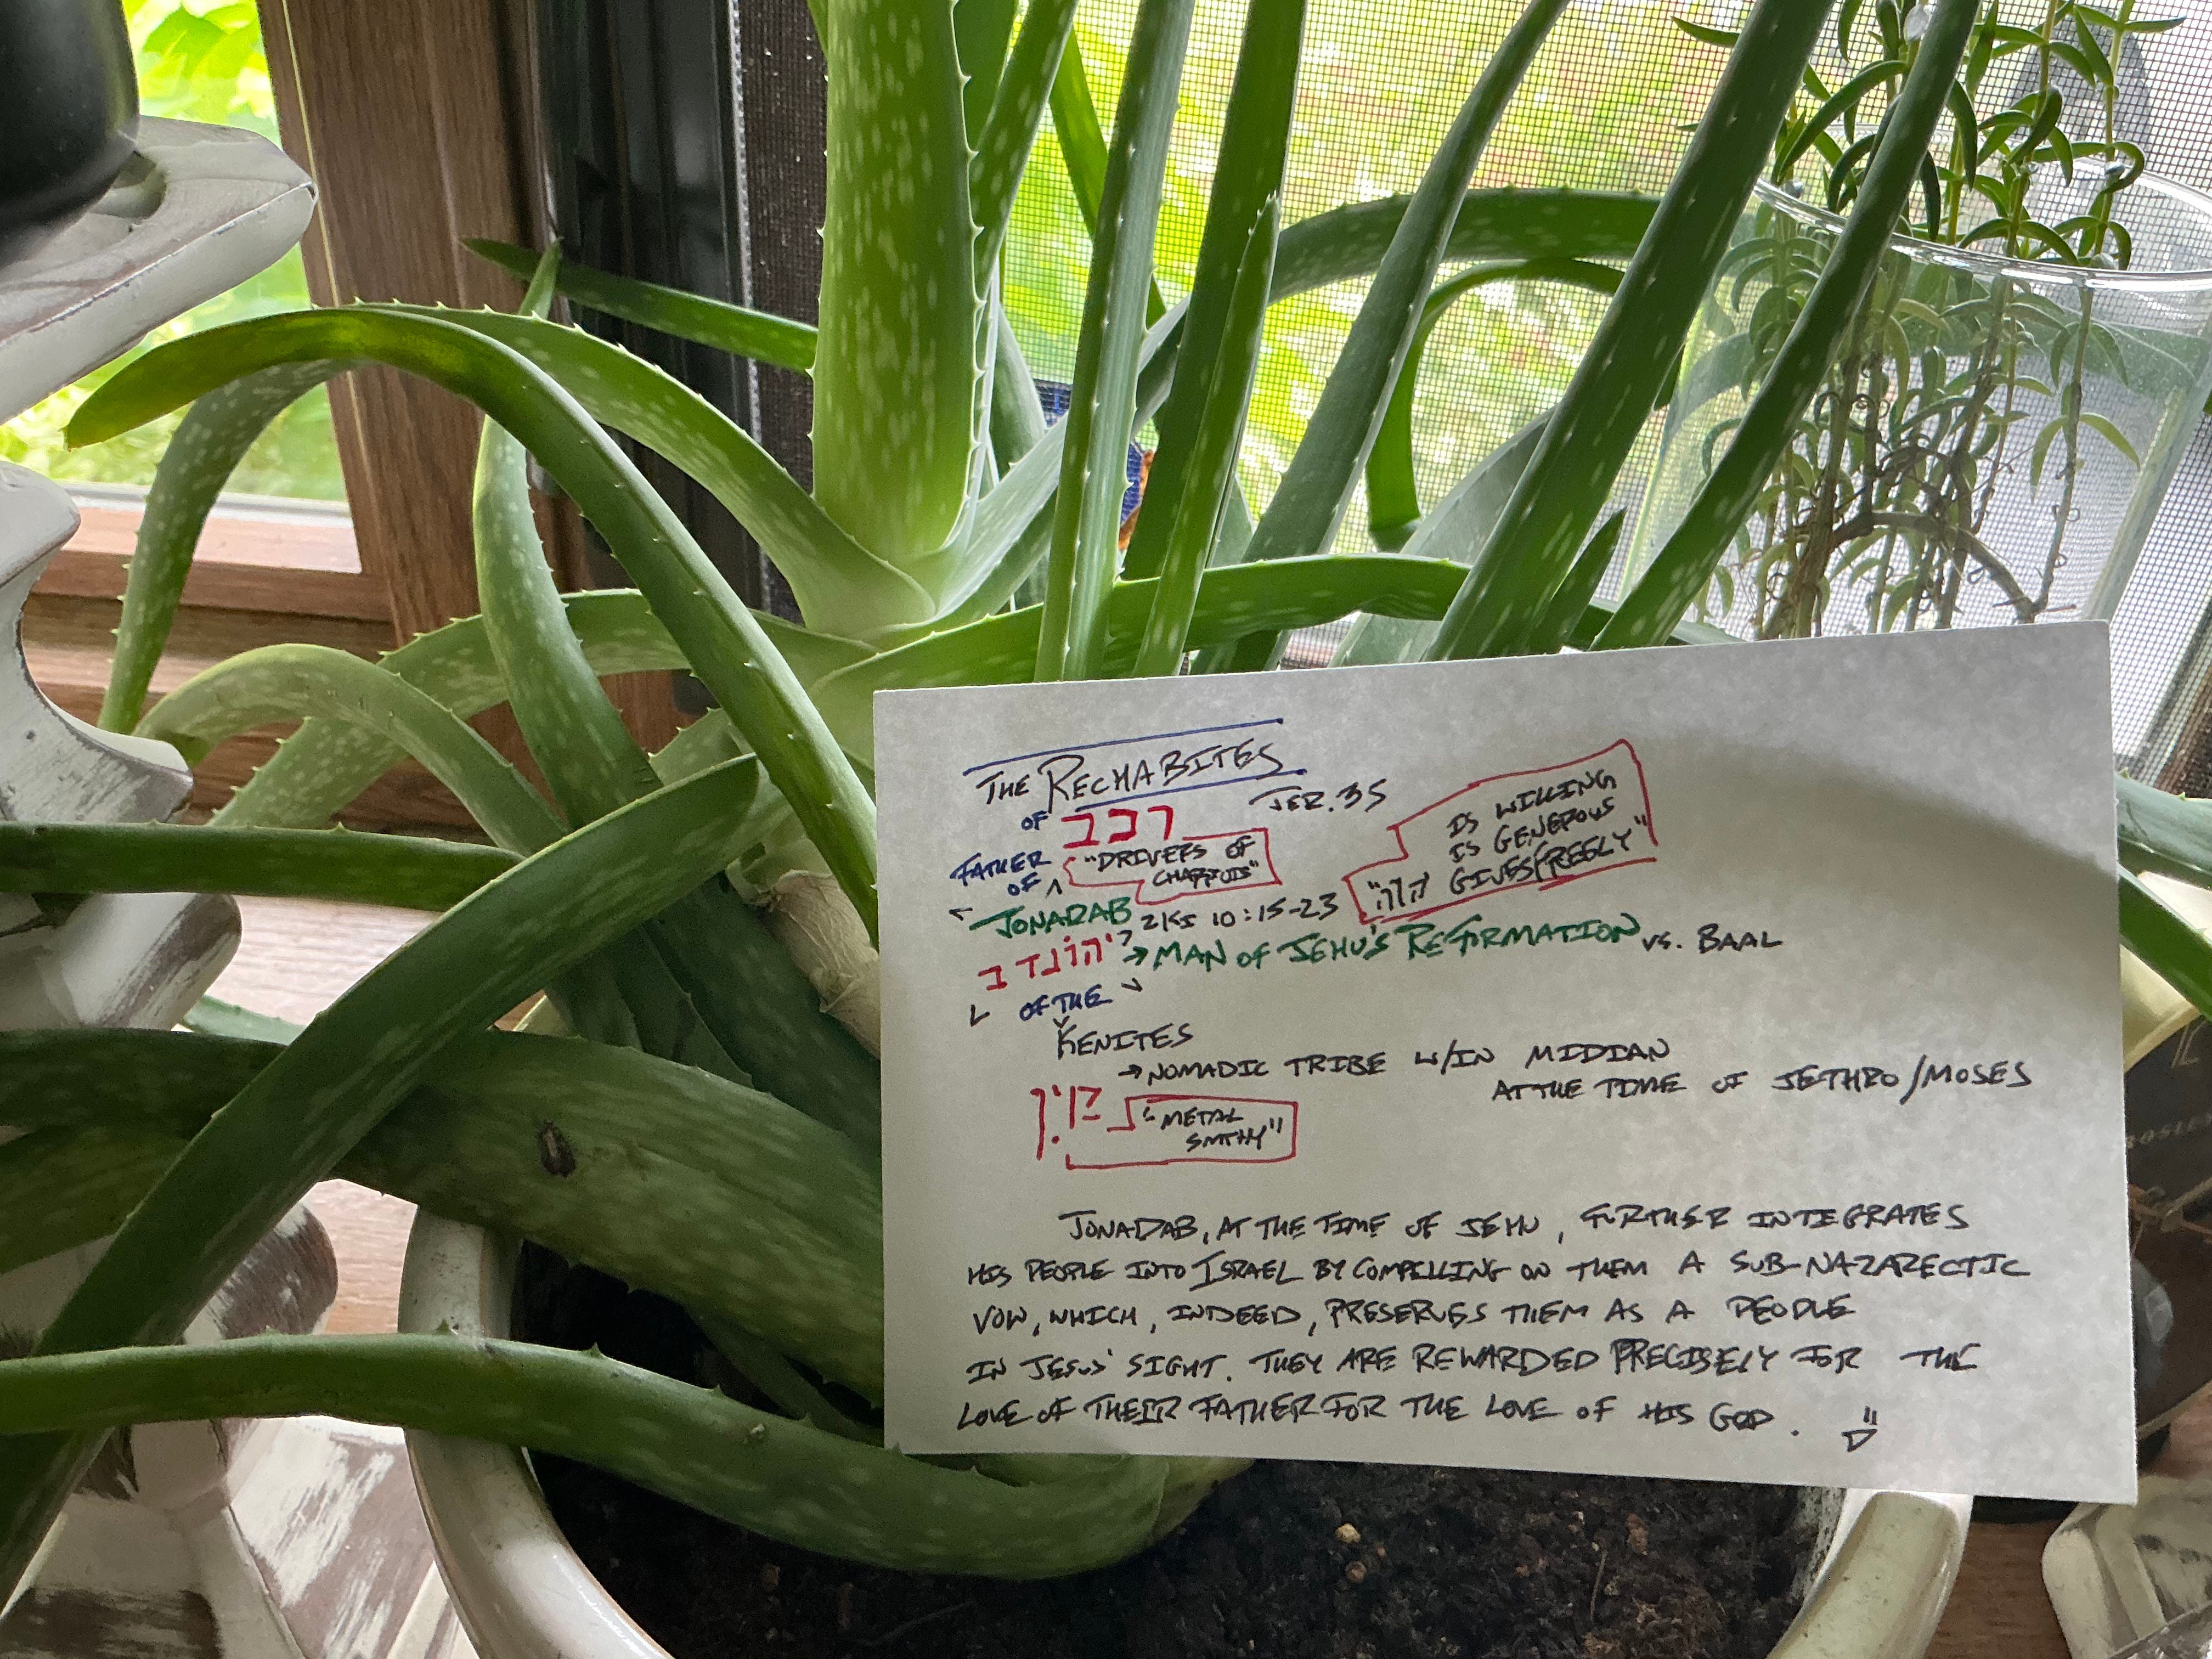 THE RECHABITES
OF רכב JER. 35
FATHER OF "DRIVERS OF
CHARIOTS"
IS WILLING
IS GENEROUS
"יהוה GIVES FREELY"
JONADAB 2KI 10:15-23
יהונדב → MAN OF JEHU'S REFORMATION VS. BAAL
OF THE
KENITES
→ NOMADIC TRIBE W/IN MIDIAN
AT THE TIME OF JETHRO/MOSES
קין "METAL
SMITHY"
JONADAB, AT THE TIME OF JEHU, FURTHER INTEGRATES
HIS PEOPLE INTO ISRAEL BY COMPELLING ON THEM A SUB-NAZARECTIC
VOW, WHICH, INDEED, PRESERVES THEM AS A PEOPLE
IN JESUS' SIGHT. THEY ARE REWARDED PRECISELY FOR THE
LOVE OF THEIR FATHER FOR THE LOVE OF HIS GOD.